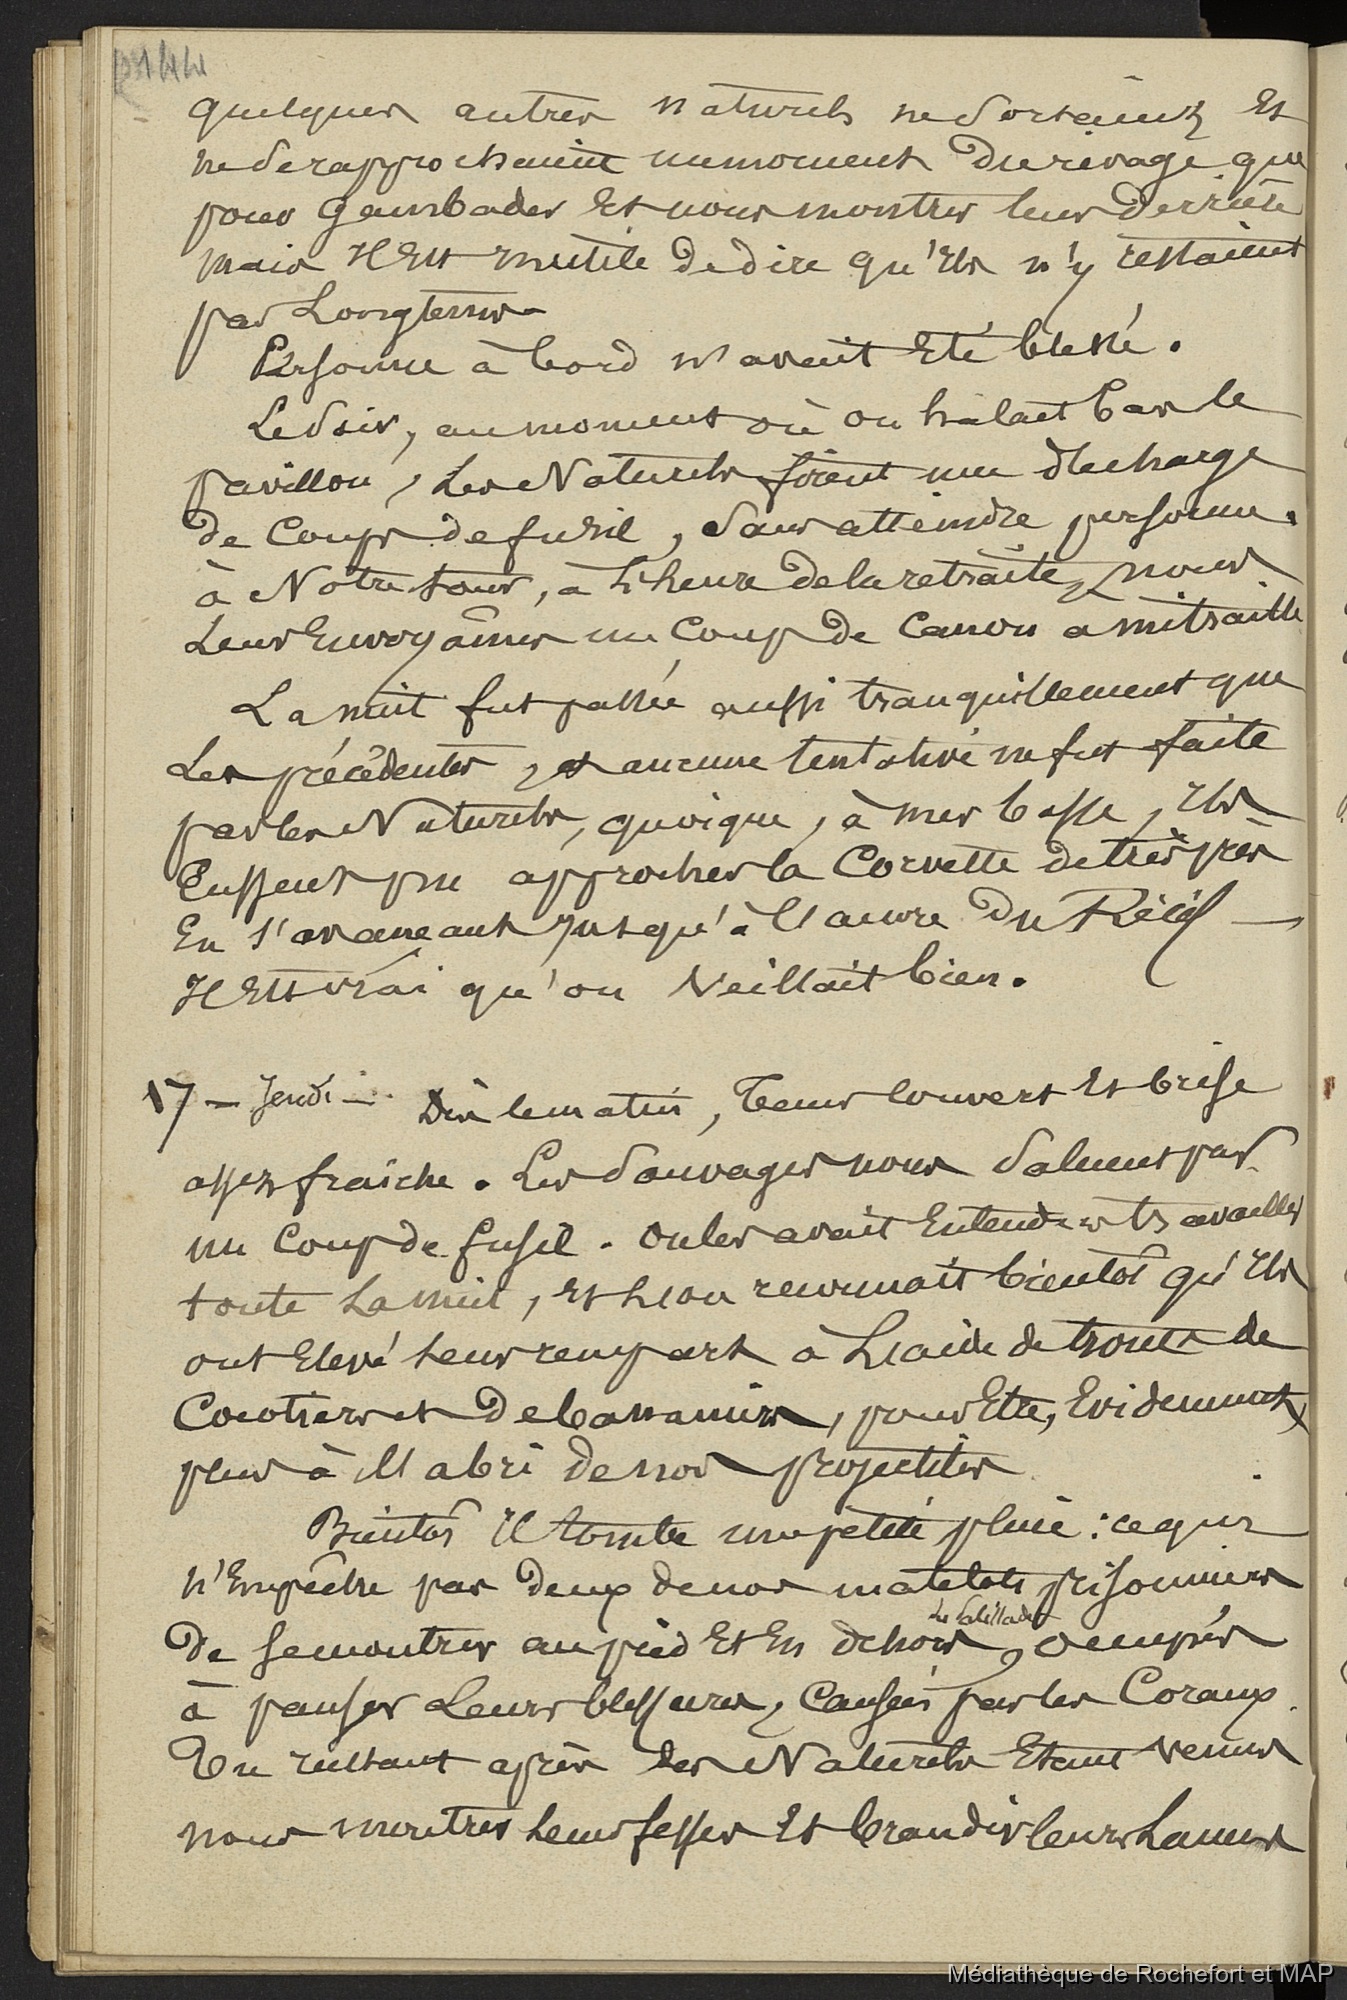 p144
quelques autres naturels ne sortaient et
ne se rapprochaient un moment du rivage que
pour gambader et nous montrer leur derrière
mais il est inutile de dire qu'ils n'y restaient
pas longtemps.
Personne à bord n'avait été blessé.
Le soir, au moment où on halait bas le
pavillon, les Naturels firent une décharge
de coups de fusil, sans atteindre personne.
à Notre tour, à l'heure de la retraite, nous
leur envoyâmes un coup de canon à mitraille
La nuit fut passée aussi tranquillement que
les précédentes, et aucune tentative ne fut faite
par les Naturels, quoique, à mer basse, ils
eussent pu approcher la Corvette de très près
en s'avançant jusqu'à l'acore du Récif —
Il est vrai qu'on veillait bien.
17 — Jeudi — Dès le matin, temps couvert et brise
assez fraîche. Les sauvages nous saluent par
un coup de fusil. On les avait entendus travailler
toute la nuit, et l'on reconnaît bientôt qu'ils
ont élevé leur rempart à l'aide de troncs de
Cocotiers et de bananiers, pour être, évidemment,
plus à l'abri de nos projectiles
Bientôt il tombe une petite pluie : ce qui
n'empêche pas deux de nos matelots prisonniers
de se montrer au pied et en dehors, occupés
à panser leurs blessures, causées par les Coraux.
Un instant après des Naturels étant venus
nous montrer leurs fesses et brandir leurs lances
Médiathèque de Rochefort et MAP